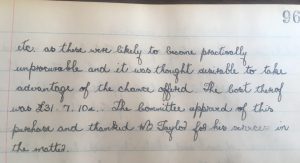 96
etc. as these were likely to become practically
unprocurable and it was thought desirable to take
advantage of the chance afford. The cost therof
was £31. 7. 10d.. The Committee approved of this
purchase and thanked Mr Taylor for his services in
the matter.